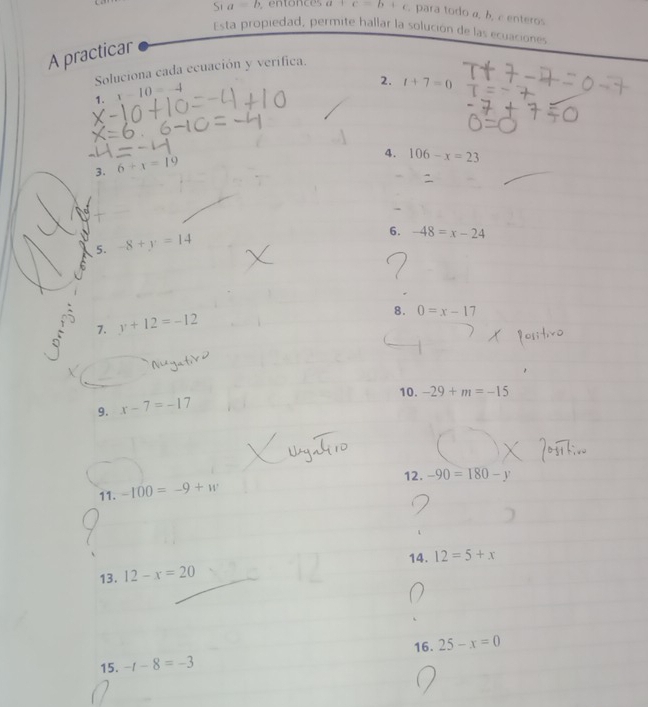 Si a = b, entonces a + c = b + c, para todo a, b, c enteros.
Esta propiedad, permite hallar la solución de las ecuaciones
A practicar
Soluciona cada ecuación y verifica.
1. x - 10 = -4
x-10+10=-4+10
x=6. 6-10=-4
-4=-4
2. t + 7 = 0
T+7-7=0-7
T=-7
-7+7=0
0=0
3. 6 + x = 19
4. 106 - x = 23
14
Corregir - Completar
5. -8 + y = 14
X
6. -48 = x - 24
?
7. y + 12 = -12
X Negativo
8. 0 = x - 17
X Positivo
9. x - 7 = -17
X Negativo
10. -29 + m = -15
X Positivo
11. -100 = -9 + w
?
12. -90 = 180 - y
?
13. 12 - x = 20
14. 12 = 5 + x
?
15. -t - 8 = -3
?
16. 25 - x = 0
?